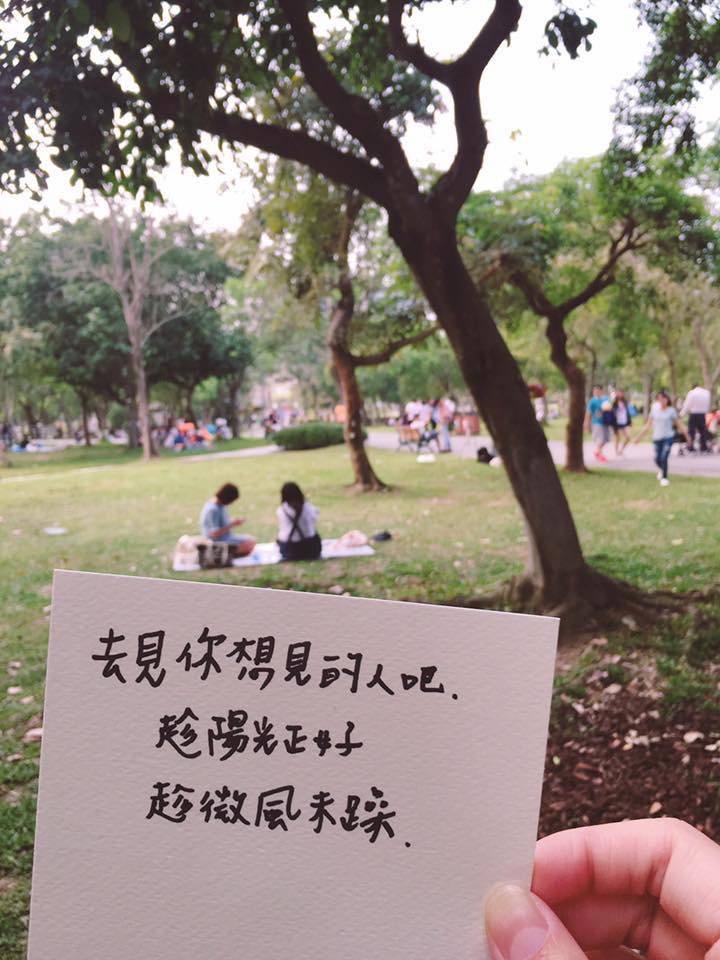 去見你想見的人吧.
趁陽光正好
趁微風未躁.